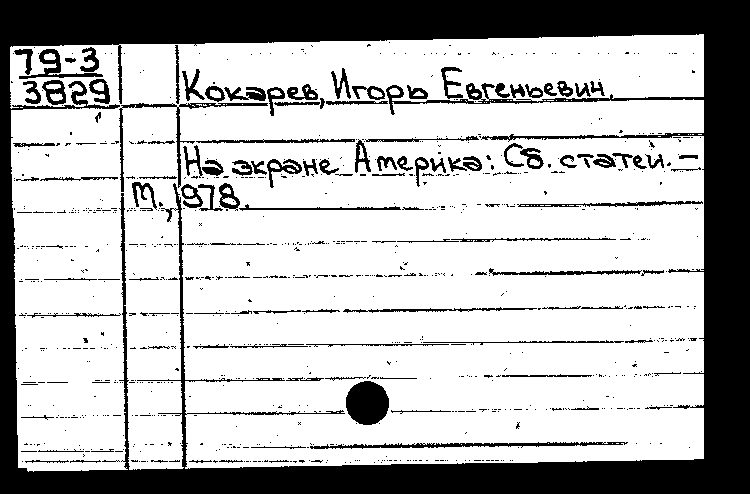 79-3
3829
Кокарев, Игорь Евгеньевич.
На экране Америка: Сб. статей. —
М., 1978.